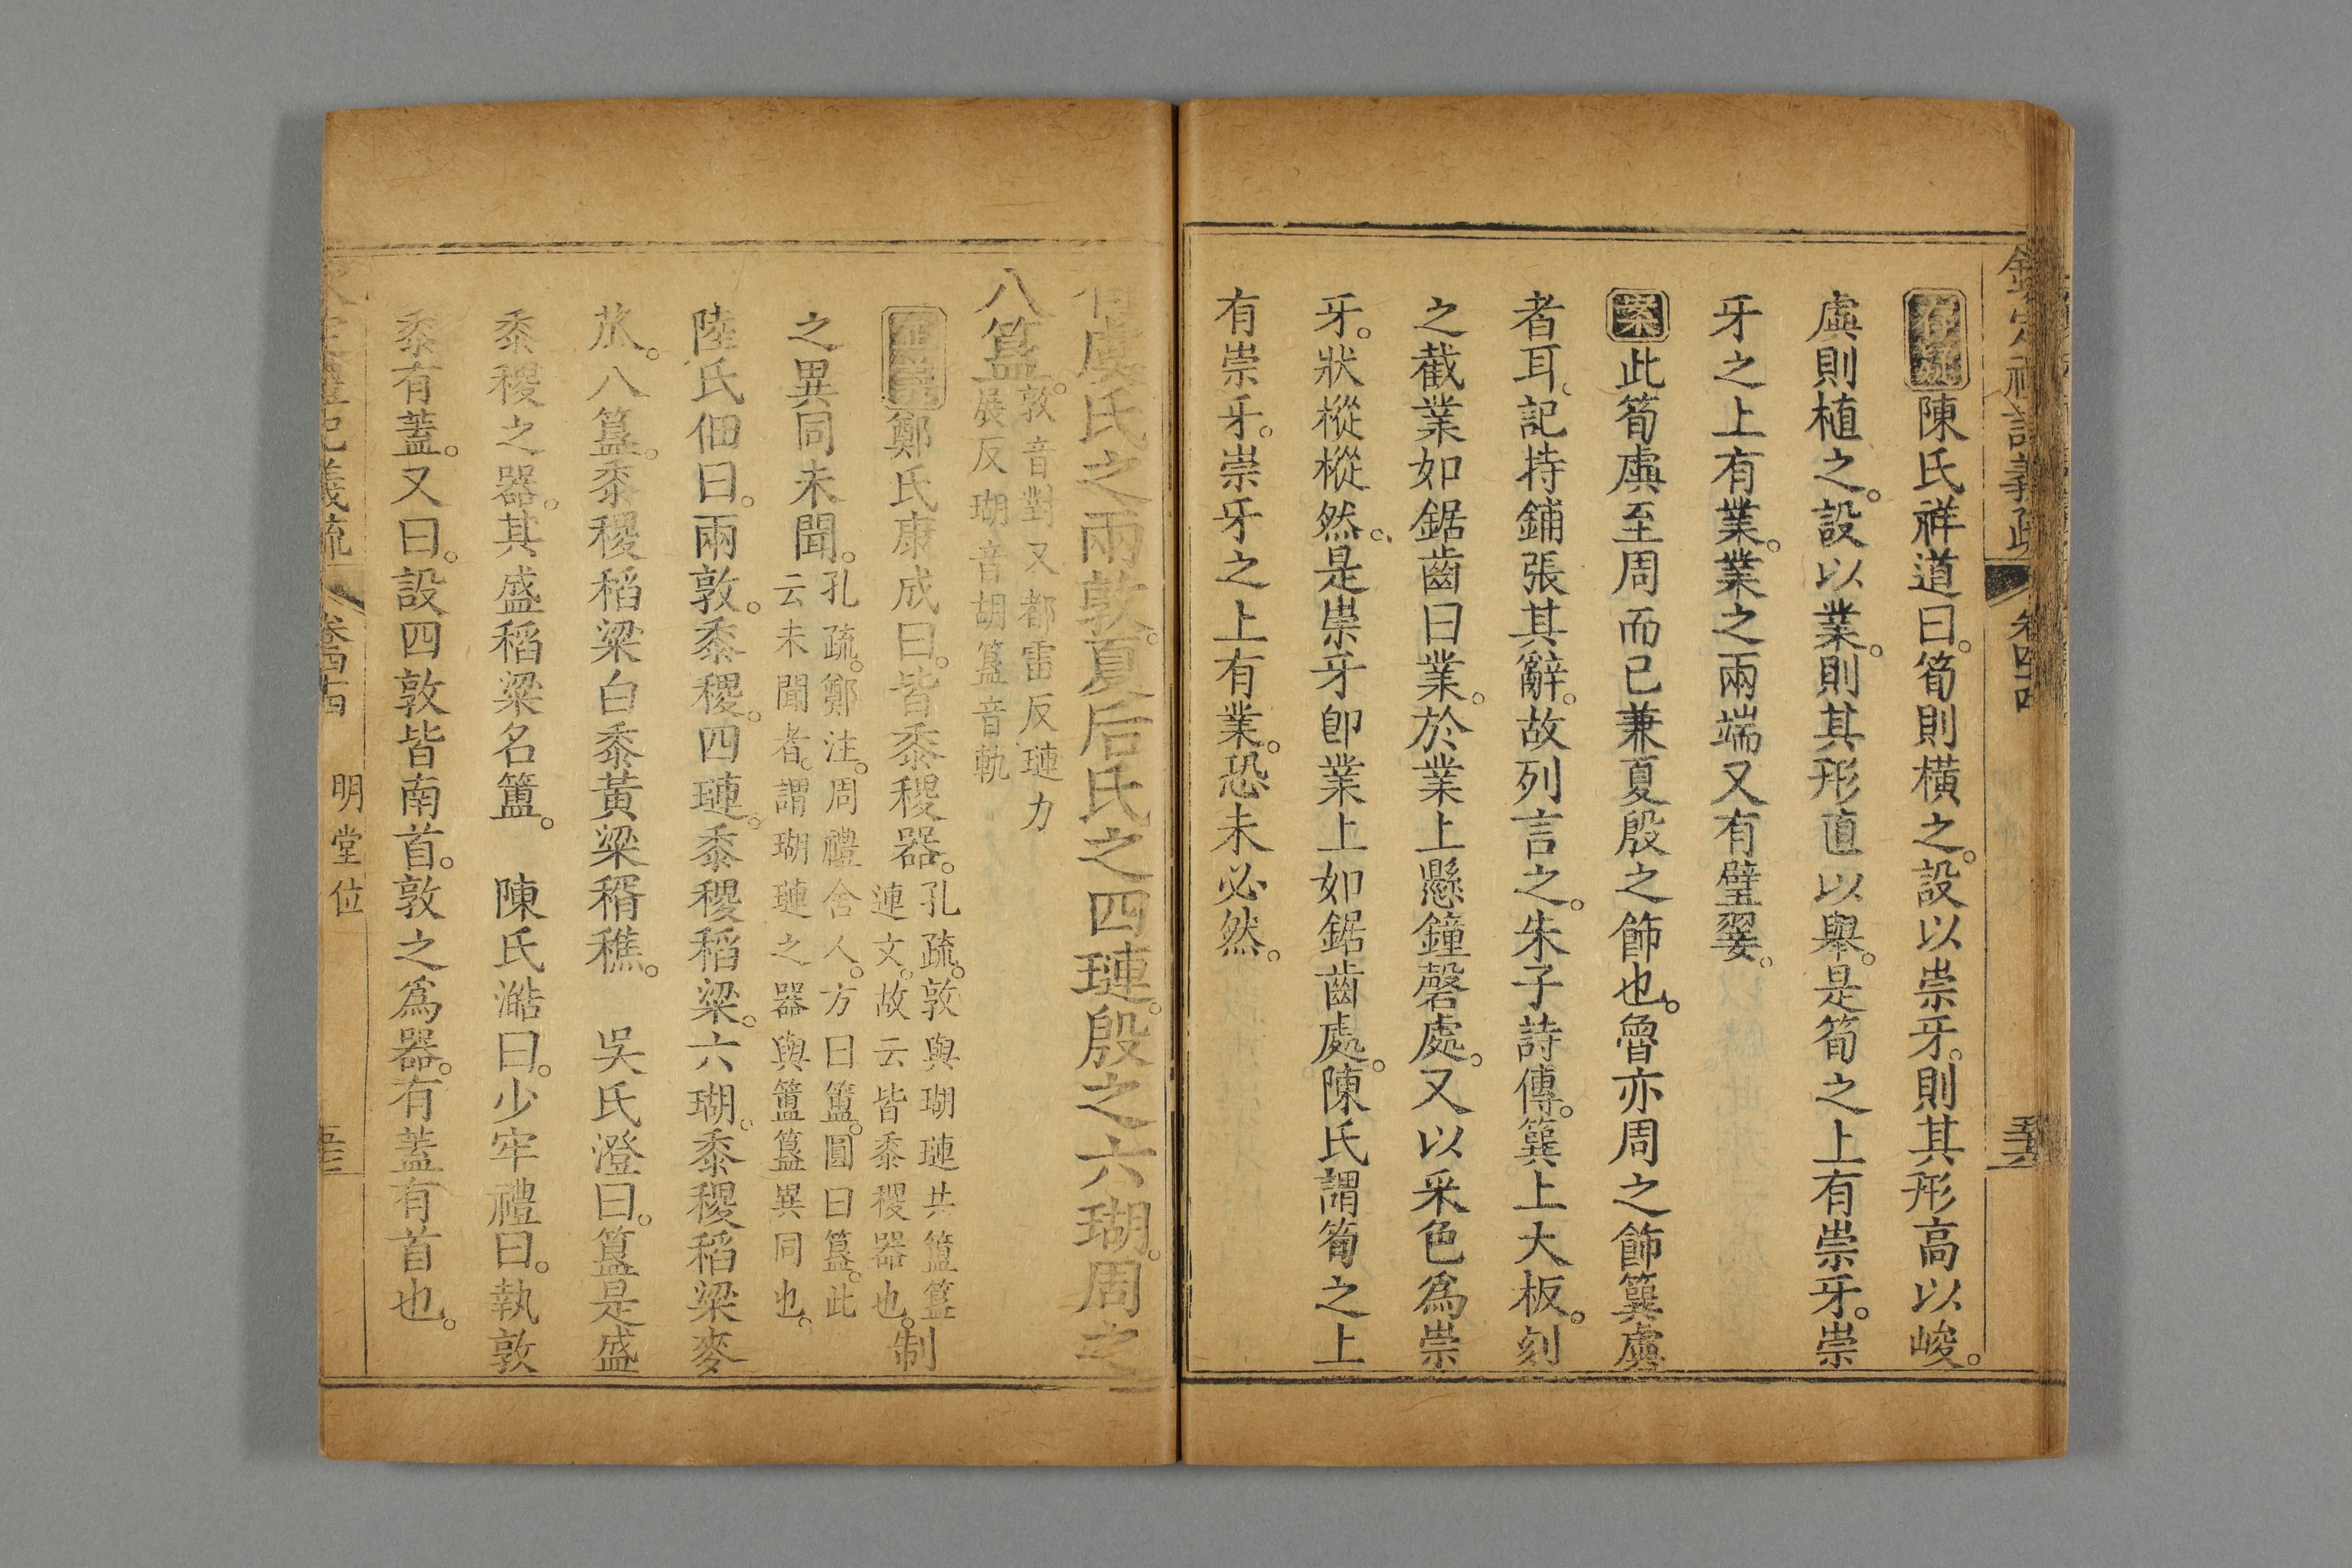 欽定禮記義疏 卷四十四
存疑陳氏祥道曰。筍則橫之。設以崇牙。則其形高以峻。
虡則植之。設以業。則其形直以舉。是筍之上有崇牙。崇
牙之上有業。業之兩端又有璧翣。
案此筍虡至周而已兼夏殷之飾也。魯亦周之飾簨虡
者耳、記特鋪張其辭。故列言之。朱子詩傳。簨上大板。刻
之截業如鋸齒曰業。於業上懸鐘磬處。又以采色爲崇
牙。狀樅樅然。是崇牙卽業上如鋸齒處。陳氏謂筍之上
有崇牙。崇牙之上有業。恐未必然。
有虞氏之兩敦。夏后氏之四璉。殷之六瑚。周之
八簋。敦音對又都雷反璉力
展反瑚音胡簋音軌
正義鄭氏康成曰。皆黍稷器。孔疏。敦與瑚璉共簠簋
連文。故云皆黍稷器也。制
之異同未聞。孔疏。鄭注。周禮舍人。方曰簠。圓曰簋。此
云未聞者。謂瑚璉之器與簠簋異同也。
陸氏佃曰。兩敦。黍稷。四璉。黍稷稻粱。六瑚。黍稷稻粱麥
苽。八簋。黍稷稻粱白黍黃粱稰穛。 吳氏澄曰。簋是盛
黍稷之器。其盛稻粱名簠。 陳氏澔曰。少牢禮曰。執敦
黍有蓋。又曰。設四敦皆南首。敦之爲器。有蓋有首也。
欽定禮記義疏 卷四十四 明堂位